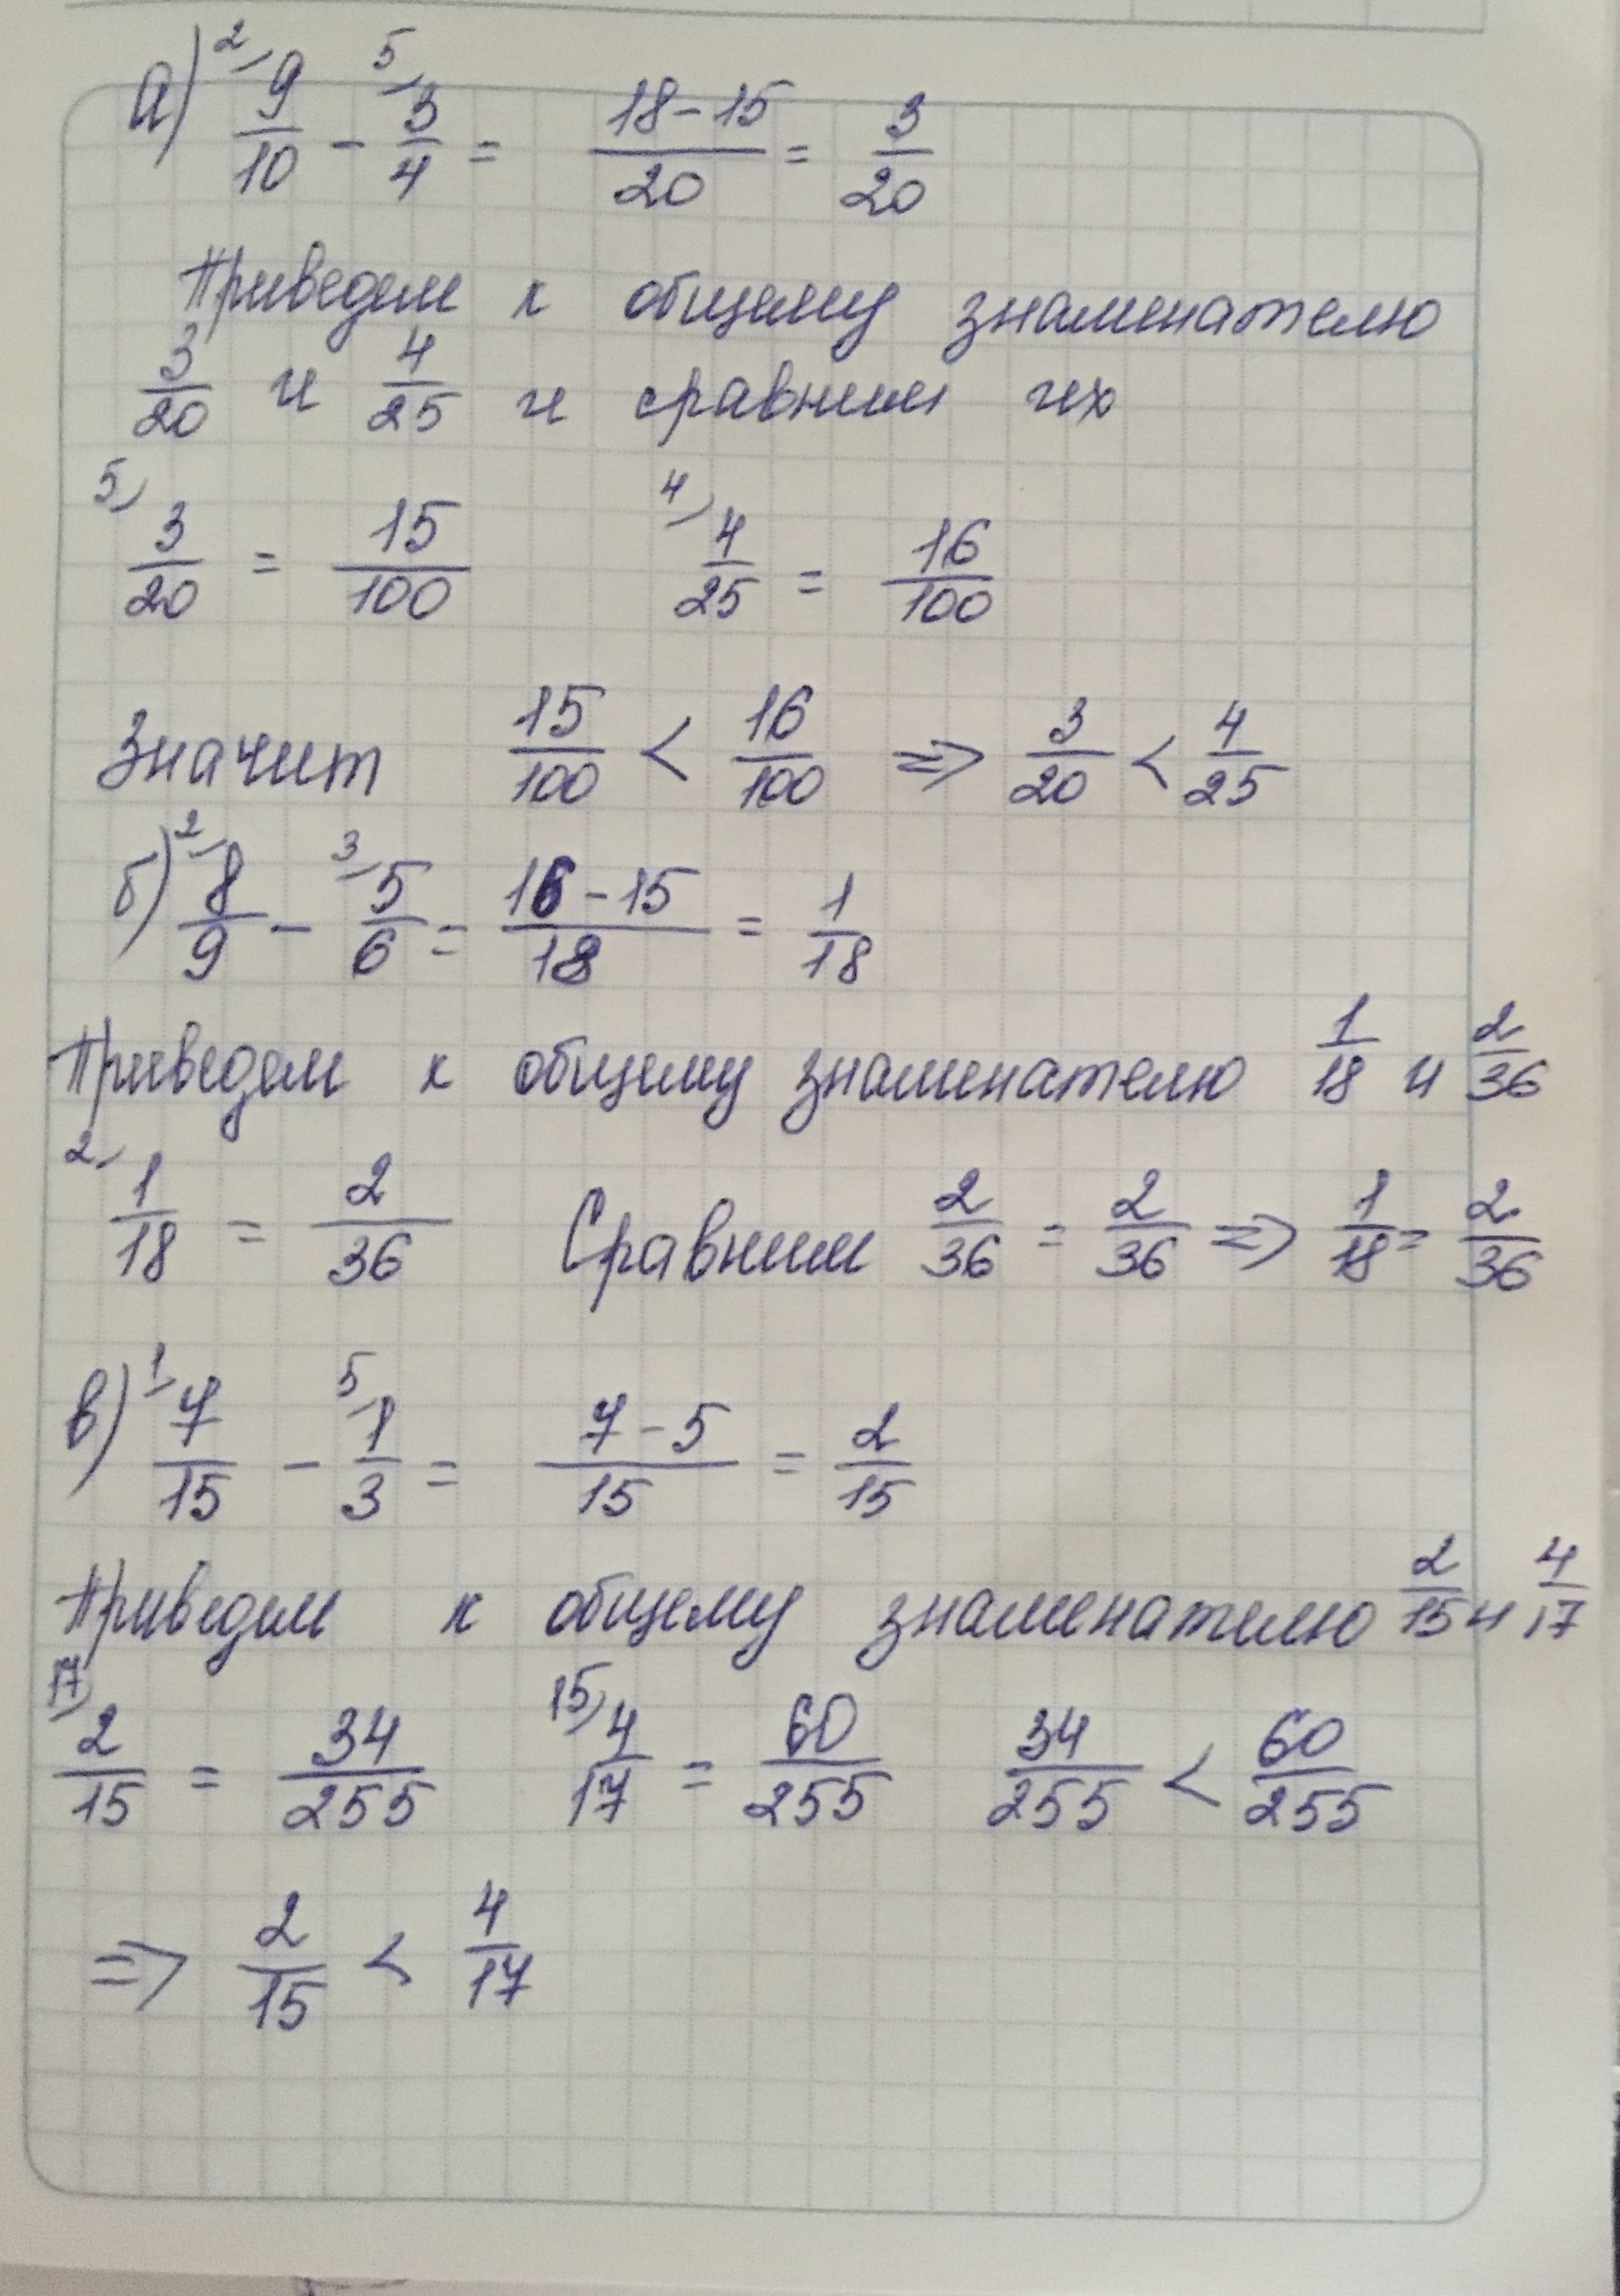 а) 2/ 9/10 - 5/ 3/4 = (18-15)/20 = 3/20
Приведем к общему знаменателю
3/20 и 4/25 и сравним их
5/ 3/20 = 15/100 4/ 4/25 = 16/100
Значит 15/100 < 16/100 => 3/20 < 4/25
б) 2/ 8/9 - 3/ 5/6 = (16-15)/18 = 1/18
Приведем к общему знаменателю 1/18 и 2/36
2/ 1/18 = 2/36 Сравним 2/36 = 2/36 => 1/18 = 2/36
в) 1/ 7/15 - 5/ 1/3 = (7-5)/15 = 2/15
Приведем к общему знаменателю 2/15 и 4/17
17/ 2/15 = 34/255 15/ 4/17 = 60/255 34/255 < 60/255
=> 2/15 < 4/17